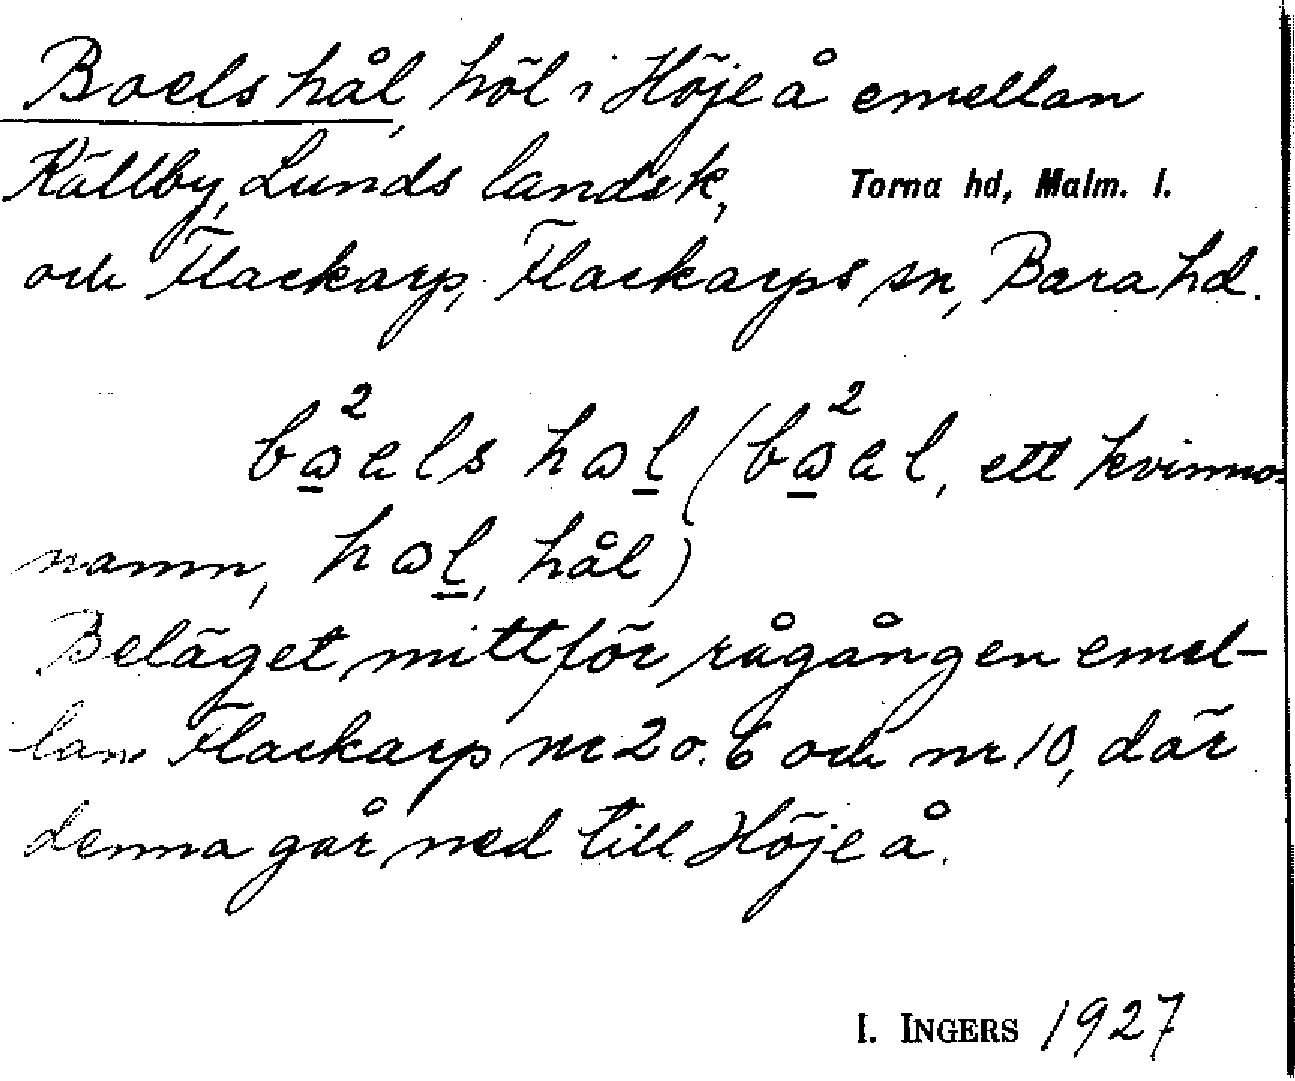 Boels hål, höl i Höje å emellan
Källby, Lunds landsk, Torna hd, Malm. l.
och Flackarp, Flackarps sn, Bara hd.
bωels hωl (bωel, ett kvinno-
namn, hωl, hål)
Beläget mitt för rågången emel-
lan Flackarp nr 2 o. 6 och nr 10, där
denna går ned till Höje å.
I. INGERS 1927